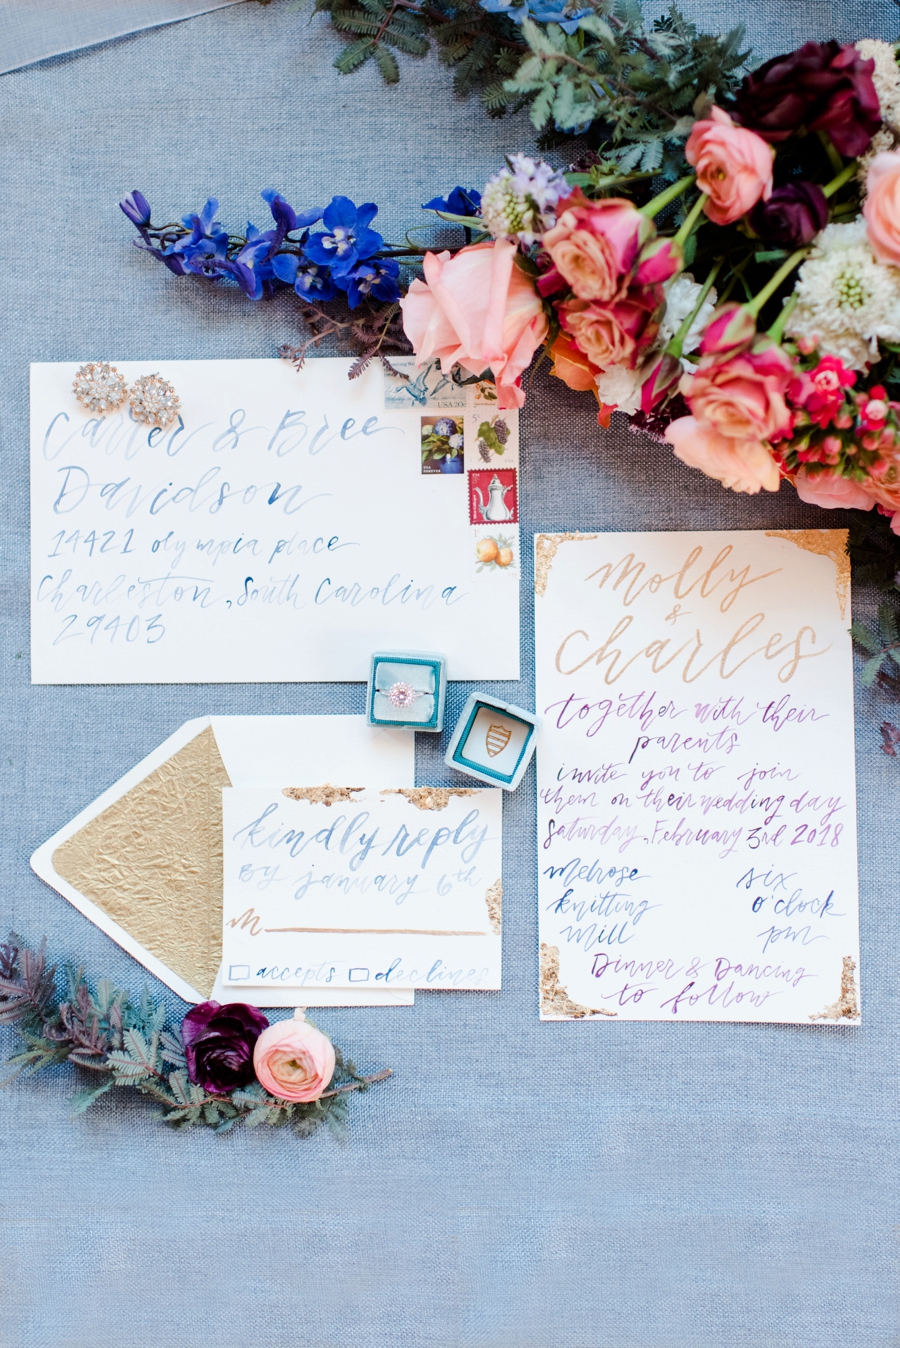 Carter & Bree
Davidson
14421 olympia place
Charleston, South Carolina
29403
USA 20c
Molly
&
Charles
together with their
parents
invite you to join
them on their wedding day
Saturday, February 3rd 2018
melrose
knitting
mill
six
o'clock
pm
Dinner & Dancing
to follow
kindly reply
By january 6th
M
accepts declines